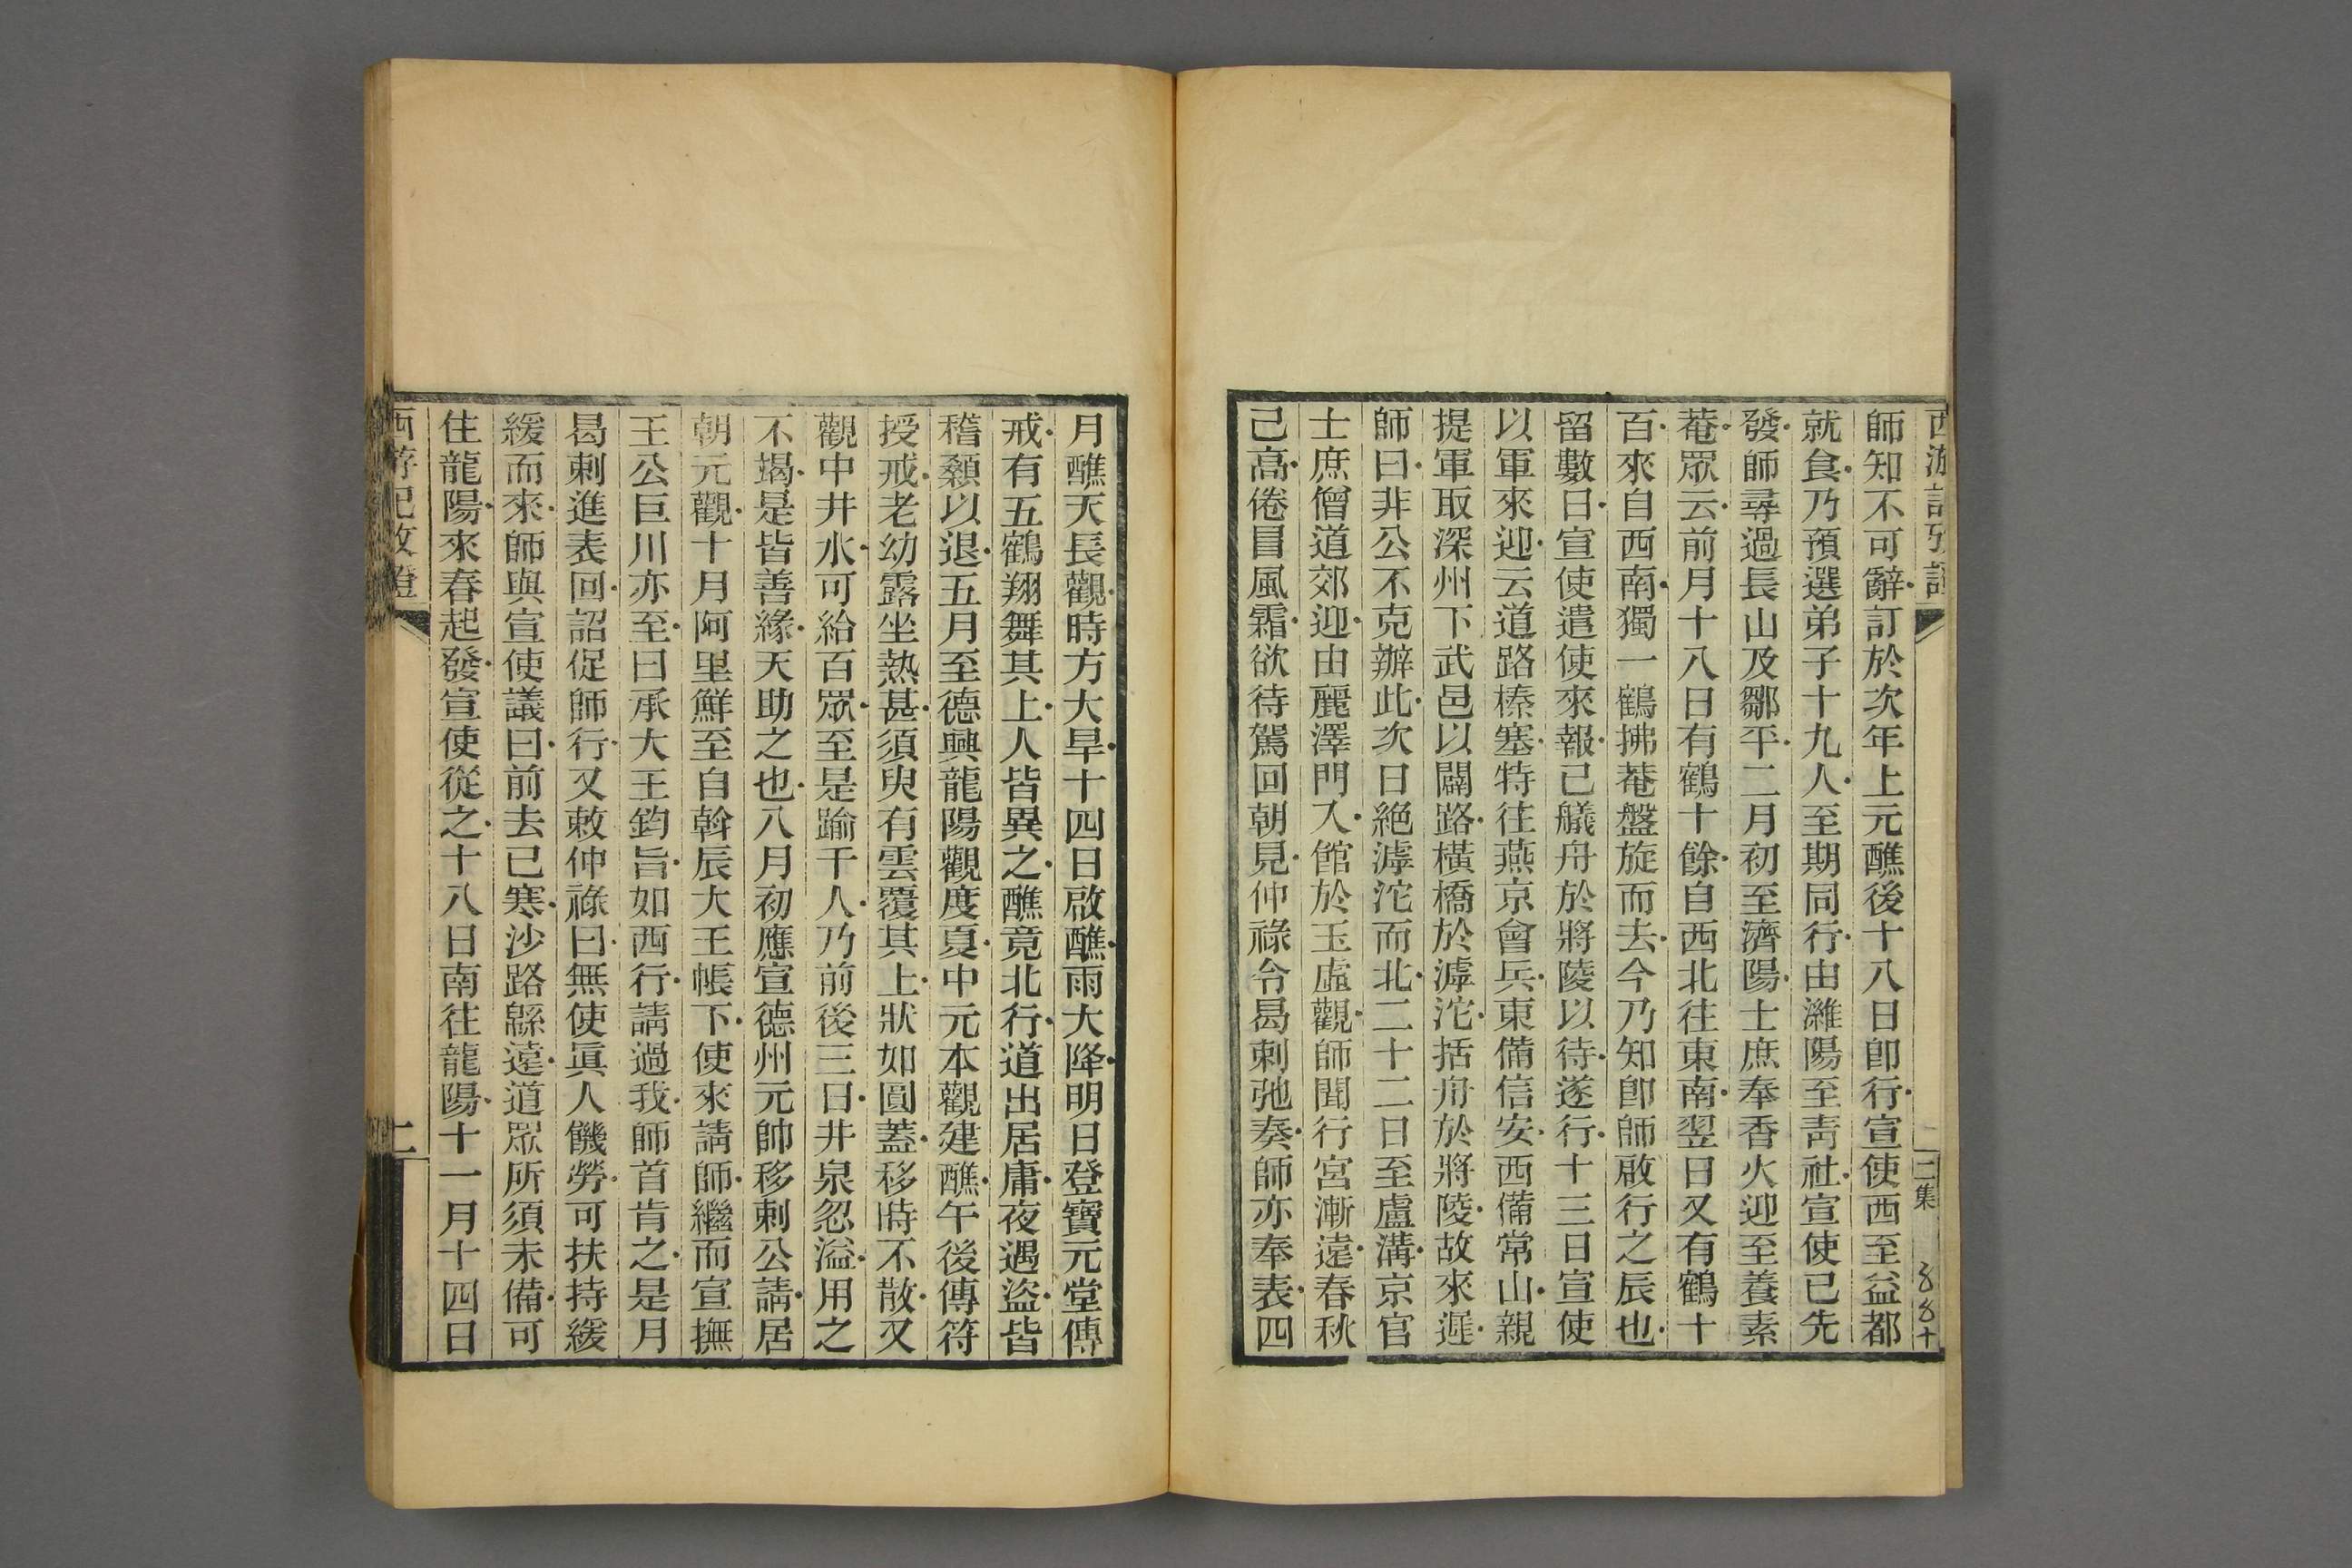 西游記攷證
二集
師知不可辭訂於次年上元醮後十八日卽行宣使西至益都
就食乃預選弟子十九人至期同行由濰陽至靑社宣使已先
發師尋過長山及鄒平二月初至濟陽士庶奉香火迎至養素
菴眾云前月十八日有鶴十餘自西北往東南翌日又有鶴十
百來自西南獨一鶴拂菴盤旋而去今乃知卽師啟行之辰也
留數日宣使遣使來報已艤舟於將陵以待遂行十三日宣使
以軍來迎云道路榛塞特往燕京會兵東備信安西備常山親
提軍取深州下武邑以闢路橫橋於滹沱括舟於將陵故來遲
師曰非公不克辦此次日絕滹沱而北二十二日至盧溝京官
士庶僧道郊迎由麗澤門入館於玉虛觀師聞行宮漸遠春秋
己高倦冒風霜欲待駕回朝見仲祿令曷剌弛奏師亦奉表四
月醮天長觀時方大旱十四日啟醮雨大降明日登寶元堂傳
戒有五鶴翔舞其上人皆異之醮竟北行道出居庸夜遇盜皆
稽顙以退五月至德興龍陽觀度夏中元本觀建醮午後傳符
授戒老幼露坐熱甚須臾有雲覆其上狀如圓蓋移時不散又
觀中井水可給百眾至是踰千人乃前後三日井泉忽溢用之
不竭是皆善緣天助之也八月初應宣德州元帥移剌公請居
朝元觀十月阿里鮮至自斡辰大王帳下使來請師繼而宣撫
王公巨川亦至曰承大王鈞旨如西行請過我師首肯之是月
曷剌進表回詔促師行又敕仲祿曰無使眞人饑勞可扶持緩
緩而來師與宣使議曰前去已寒沙路緜遠道眾所須未備可
住龍陽來春起發宣使從之十八日南往龍陽十一月十四日
西游記攷證
二